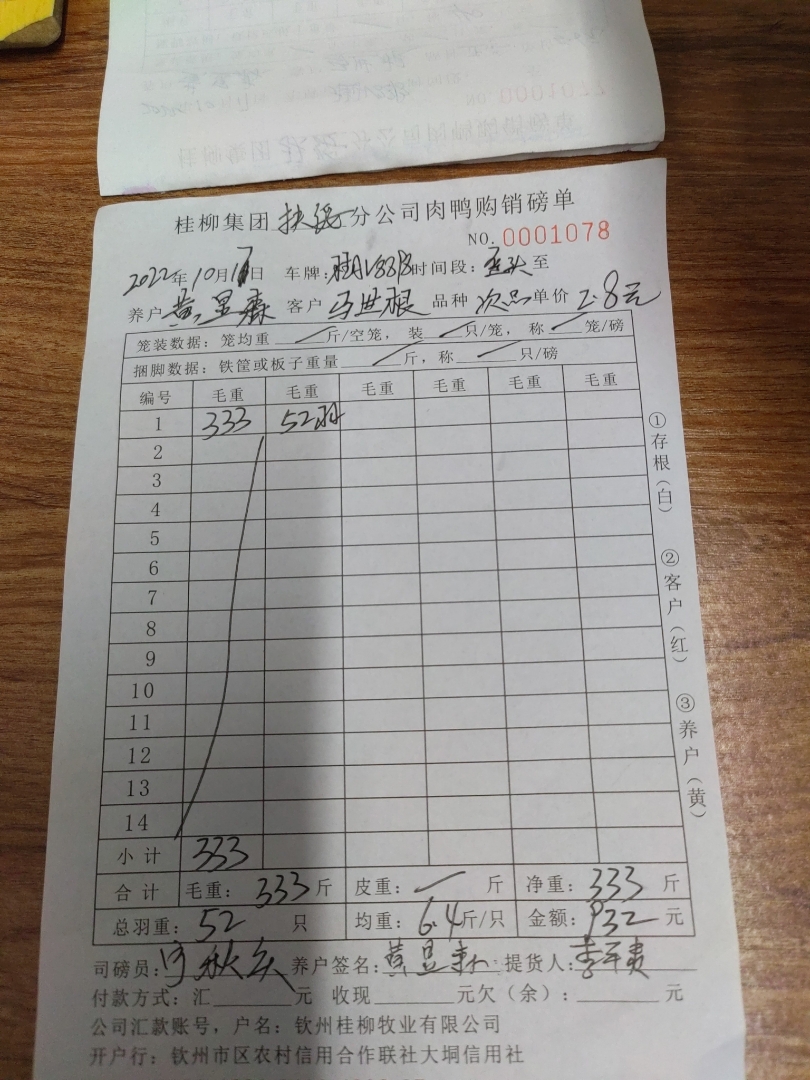 桂柳集团扶绥分公司肉鸭购销磅单
NO. 0001078
2022年10月17日 车牌: 时间段: 至
养户黄显森 客户马世根 品种次品单价2.8元
笼装数据: 笼均重 斤/空笼, 装 只/笼, 称 笼/磅
捆脚数据: 铁筐或板子重量 斤, 称 只/磅
编号 毛重 毛重 毛重 毛重 毛重 毛重
1 333 52羽
2
3
4
5
6
7
8
9
10
11
12
13
14
小计 333
合计 毛重: 333斤 皮重: 斤 净重: 333斤
总羽重: 52只 均重: 6.4斤/只 金额: 932元
司磅员: 养户签名: 黄显森 提货人:
付款方式: 汇 元 收现 元欠(余): 元
公司汇款账号, 户名: 钦州桂柳牧业有限公司
开户行: 钦州市区农村信用合作联社大垌信用社
①存根(白)
②客户(红)
③养户(黄)